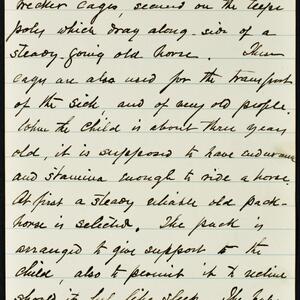 wicker cages secured on the teepe
poles which drag along-side of a
steady-going old horse. These
cages are also used for the transport
of the sick and of very old people.
When the child is about three years
old, it is supposed to have endurance
and stamina enough to ride a horse.
At first a steady reliable old pack-
horse is selected. The pack is
arranged to give support to the
child, also to permit it to recline
should it feel like sleep. The